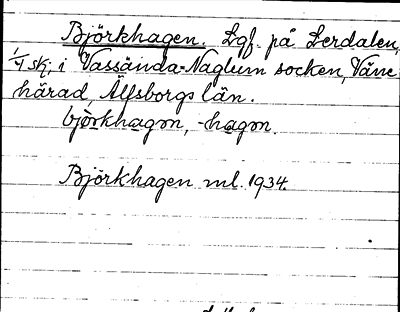 Björkhagen. Lgf. på Lerdalen,
1/4 sk; i Vassända-Naglum socken, Väne
härad, Älfsborgs län.
bjòrkhagɔn, -hagɔn.
Björkhagen ml. 1934.